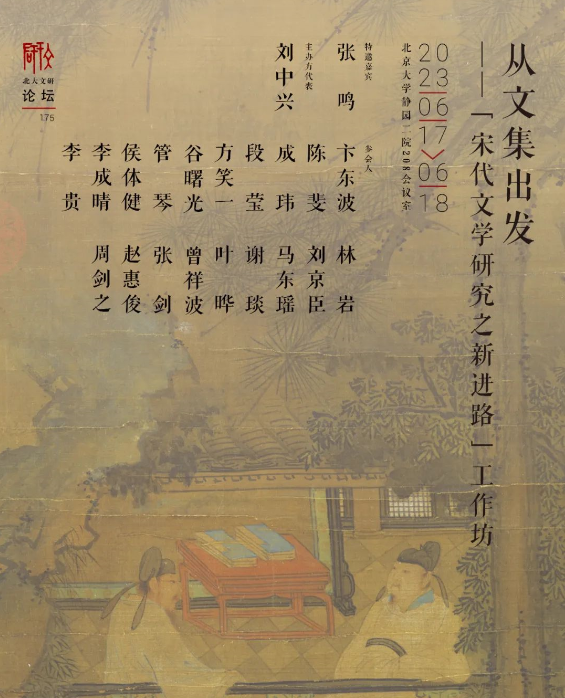 从文集出发
——「宋代文学研究之新进路」工作坊
2023
06
17
06
18
北京大学静园二院208会议室
特邀嘉宾
张鸣
主办方代表
刘中兴
参会人
卞东波 林岩
陈斐 刘京臣
成玮 马东瑶
段莹 谢琰
方笑一 叶晔
谷曙光 曾祥波
管琴 张剑
侯体健 赵惠俊
李成晴 周剑之
李贵
北大文研
论坛
175